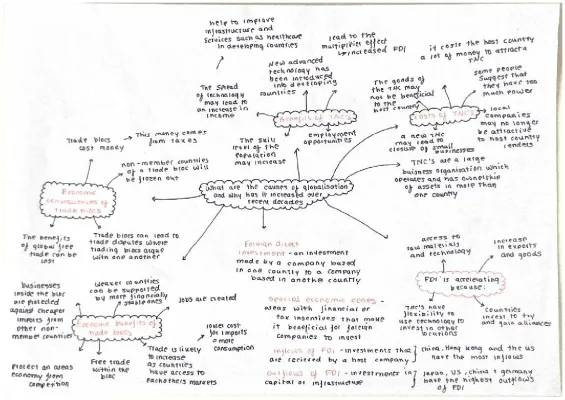 help to improve
infrastructure and
services such as healthcare
in developing countries
lead to the
multiplier effect
increased FDI
it costs the host country
a lot of money to attract a
TNC
New advanced
technology has
been introduced
into developing
countries
The spread
of technology
may lead to
an increase in
income
The goods of
the TNC may
not be beneficial
to the
host country
some people
suggest that
they have too
much power
Benefits of TNC's
Costs of TNC's
local
companies
may no longer
be attractive
to host country
lenders
The skill
level of the
population
may increase
employment
opportunities
a new TNC
may lead to
closure of small
businesses
TNC's are a large
business organisation which
operates and has ownership
of assets in more than
one country
Trade blocs
cost money
This money comes
from taxes
non-member countries
of a trade bloc will
be frozen out
Economic
consequences of
trade blocs
What are the causes of globalisation
and why has it increased over
recent decades
The benefits
of global free
trade can be
lost
Trade blocs can lead to
trade disputes where
trading blocs argue
with one another
Foreign direct
investment - an investment
made by a company based
in one country to a company
based in another country
access to
raw materials
and technology
increase
in exports
and goods
FDI is accelerating
because:
TNC's have
flexibility to
use technology to
invest in other
locations
Countries
invest to try
and gain alliances
Businesses
inside the bloc
are protected
against cheaper
imports from
other non-
member countries
weaker countries
can be supported
by more financially
stable ones
Jobs are created
Economic benefits of
trade blocs
lower cost
for imports
more
consumption
Protect an areas
economy from
competition
Free trade
within the bloc
Trade is likely
to increase
as countries
have access to
eachothers markets
Special economic zones -
areas with financial or
tax incentives that make
it beneficial for foreign
companies to invest
Inflows of FDI - investments that
are recieved by a host company
China, Hong Kong and the US
have the most inflows
Outflows of FDI - investments in
capital or infrastructure
Japan, US, China + Germany
have the highest outflows
of FDI